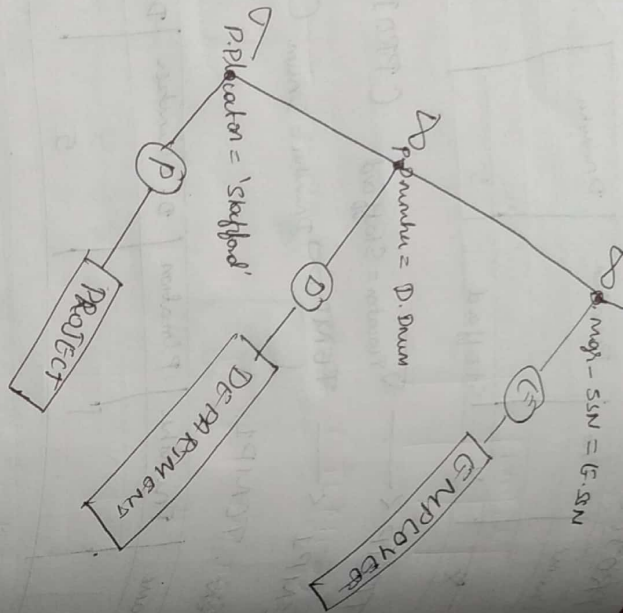 D.Mgr-SSN = E.SSN
E
EMPLOYEE
P.Dnumber = D.Dnum
D
DEPARTMENT
P.Plocation = 'Stafford'
P
PROJECT